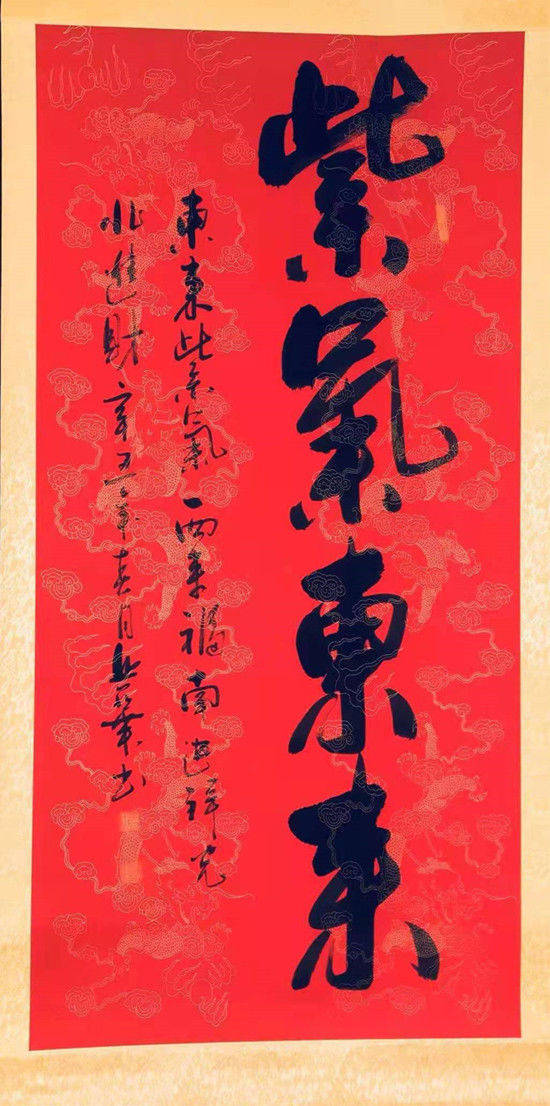 紫氣東來
東來紫氣西來福南進祥光
北進財辛丑年春月
書